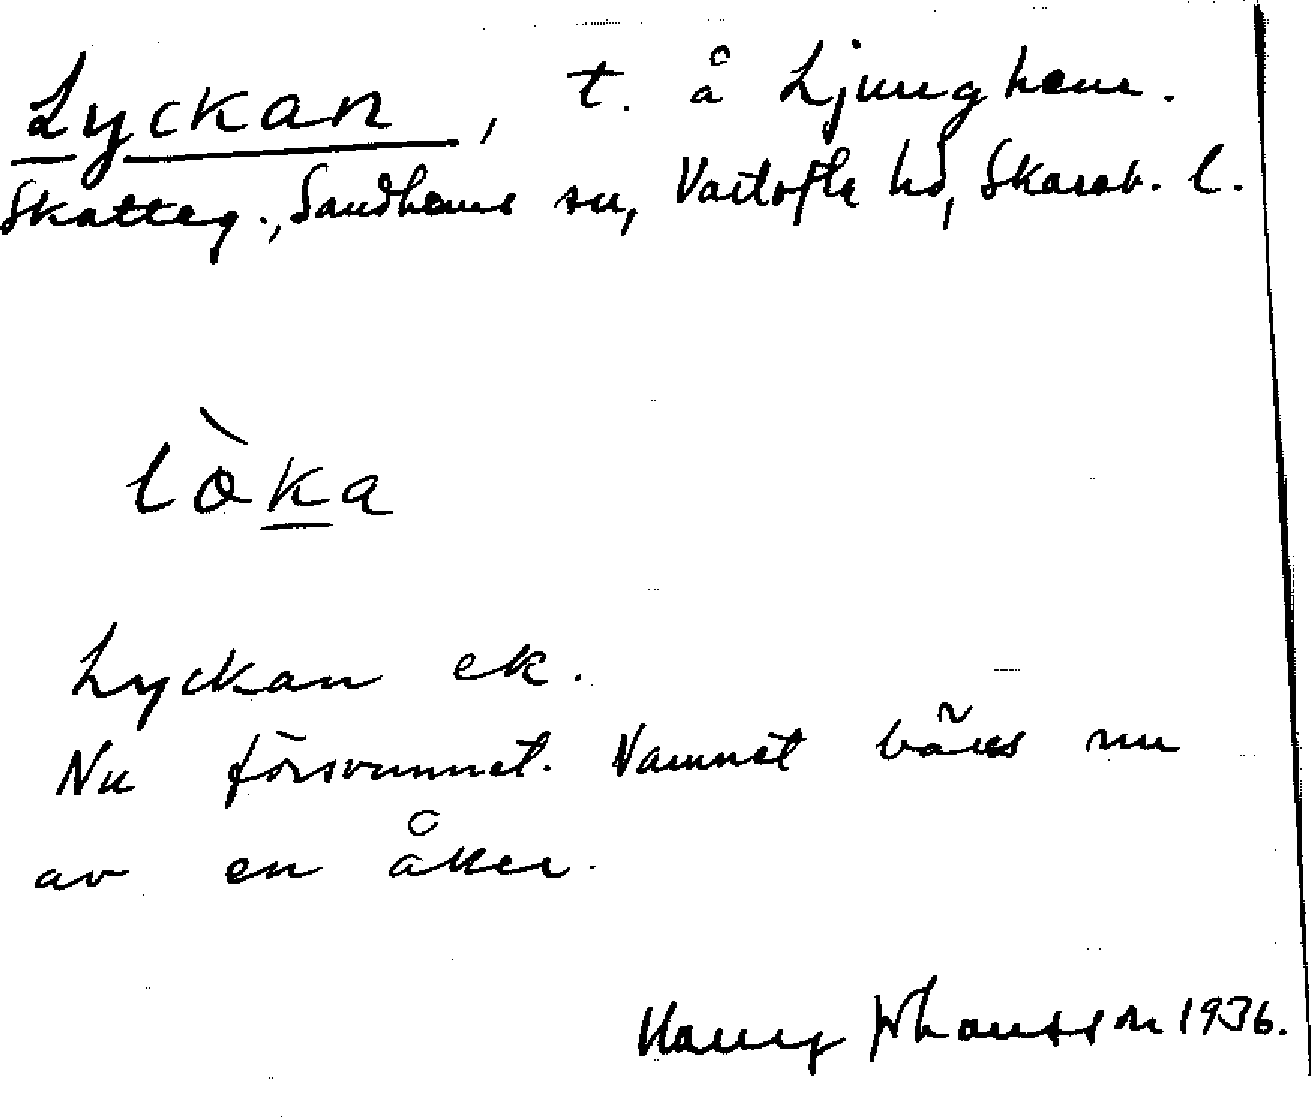 Lyckan, t. å Ljunghem.
Skatteg., Sandhems sn, Vartofta hd, Skarab. l.
lò̀ka
Lyckan ek.
Nu försvunnet. Namnet bäres nu
av en åker.
Harry Johansson 1936.